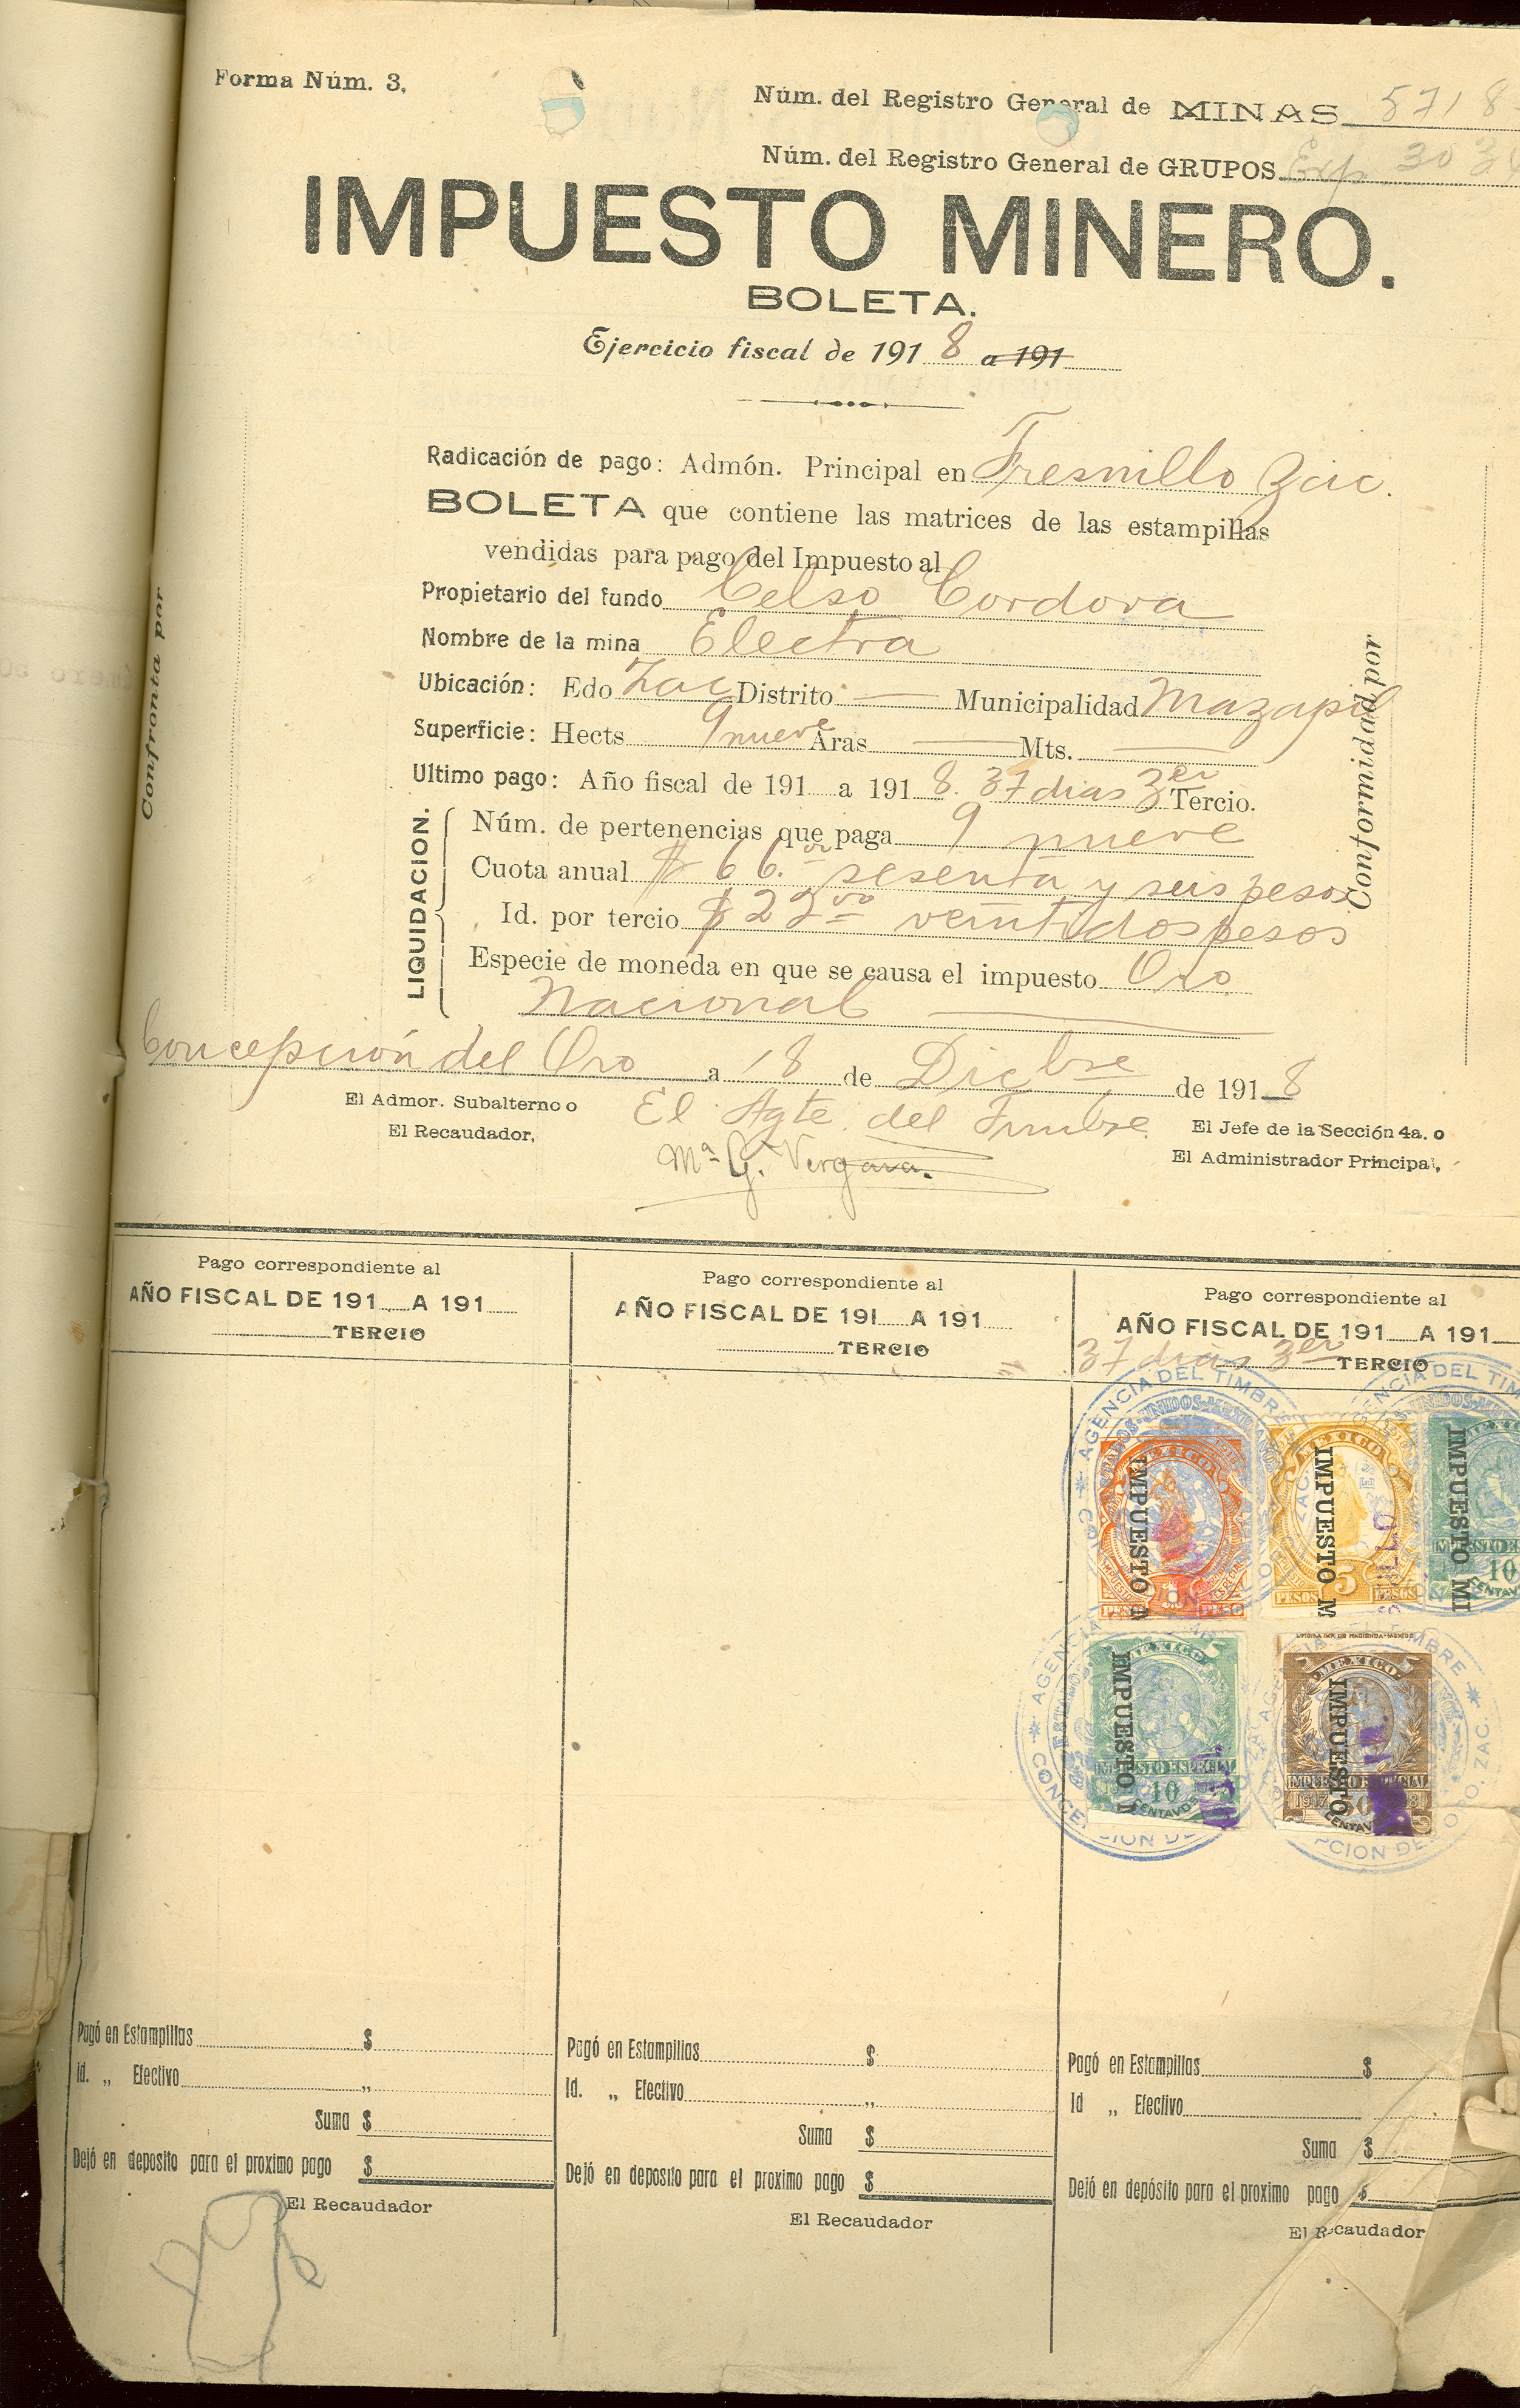 Forma Núm. 3.
Núm. del Registro General de MINAS 5718
Núm. del Registro General de GRUPOS Exp. 303
IMPUESTO MINERO.
BOLETA.
Ejercicio fiscal de 1918 a 191
Radicación de pago: Admón. Principal en Fresnillo Zac.
BOLETA que contiene las matrices de las estampillas
vendidas para pago del Impuesto al
Propietario del fundo Celso Cordova
Nombre de la mina Electra
Ubicación: Edo Zac Distrito — Municipalidad Mazapil
Superficie: Hects 9 nueve Aras — Mts. —
Ultimo pago: Año fiscal de 191 a 191 8. 37 dias 3er Tercio.
LIQUIDACION.
Núm. de pertenencias que paga 9 nueve
Cuota anual $ 66.00 sesenta y seis pesos
Id. por tercio $ 22 00 veintidos pesos
Especie de moneda en que se causa el impuesto Oro
Nacional
Confronta por
Conformidad por
Concepción del Oro a 18 de Dicbre de 1918
El Admor. Subalterno o
El Recaudador,
El Agte. del Timbre
Ma G. Vergara.
El Jefe de la Sección 4a. o
El Administrador Principal,
Pago correspondiente al
AÑO FISCAL DE 191 A 191
TERCIO
Pago correspondiente al
AÑO FISCAL DE 191 A 191
TERCIO
Pago correspondiente al
AÑO FISCAL DE 191 A 191
37 dias 3er TERCIO
AGENCIA DEL TIMBRE
MEXICO
IMPUESTO M
PESO PESO
MEXICO
IMPUESTO M
5
PESOS PESOS
AGENCIA DEL TIM
IMPUESTO MI
10
CENTAV
AGENCIA
MEXICO
IMPUESTO
IMPUESTO ESPECIAL
10
CENTAVOS
OFICINA IMP. DE HACIENDA-MEXICO
MEXICO
IMPUESTO
IMPUESTO ESPECIAL
1917
50
CENTAV
ORO, ZAC.
Pagó en Estampillas $
Id. „ Efectivo „
Suma $
Dejó en deposito para el proximo pago $
El Recaudador
Pagó en Estampillas $
Id. „ Efectivo „
Suma $
Dejó en deposito para el proximo pago $
El Recaudador
Pagó en Estampillas $
Id „ Efectivo
Suma $
Dejó en depósito para el proximo pago $
El Recaudador